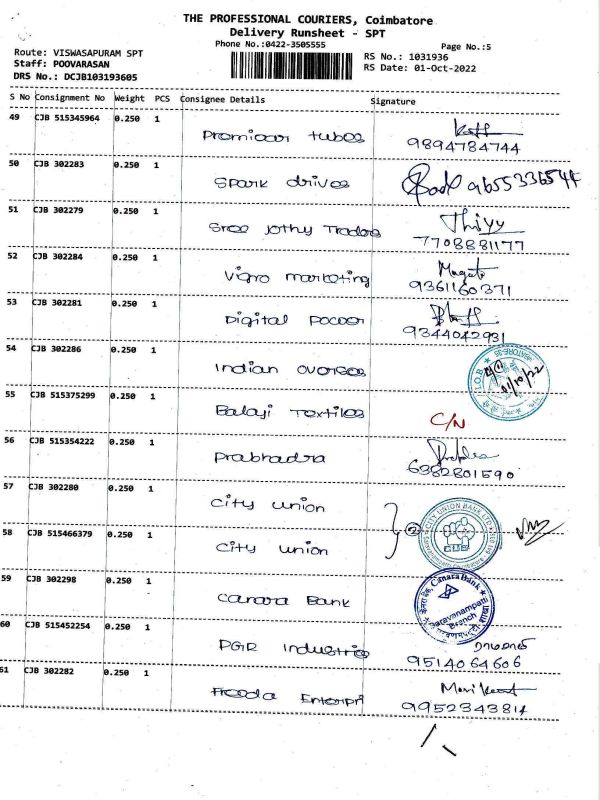 THE PROFESSIONAL COURIERS, Coimbatore
Delivery Runsheet - SPT
Phone No.:0422-3505555
Page No.:5
Route: VISWASAPURAM SPT
Staff: POOVARASAN
DRS No.: DCJB103193605
RS No.: 1031936
RS Date: 01-Oct-2022
S No Consignment No Weight PCS Consignee Details Signature
49 CJB 515345964 0.250 1 Promicar tubes
9894784744
50 CJB 302283 0.250 1 Spark drives 9655336544
51 CJB 302279 0.250 1 Sree Jothy Traders Thiyy
7708881177
52 CJB 302284 0.250 1 Vigro marketing
9361160371
53 CJB 302281 0.250 1 Digital Pocoer
9344042931
54 CJB 302286 0.250 1 Indian overses
I.O.B
11/10/22
55 CJB 515375299 0.250 1 Balaji Textiles C/N
56 CJB 515354222 0.250 1 Prabhadra
6382801590
57 CJB 302280 0.250 1 City union
58 CJB 515466379 0.250 1 City union
2
CITY UNION BANK LTD
CUB
59 CJB 302298 0.250 1 Canara Bank
Canara Bank
Saravanampatti
Branch
60 CJB 515452254 0.250 1 PGR Industrie
9514064606
61 CJB 302282 0.250 1 Freeda Enterpri
9952343814